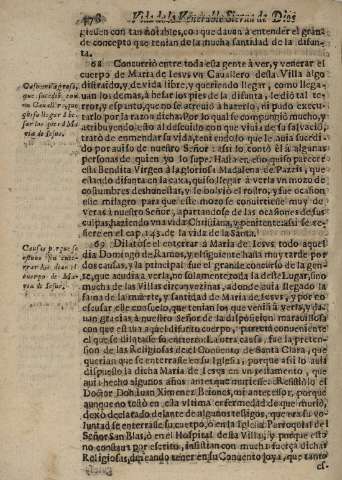 478 Vida de la Venerable Sierva de Dios
gieden con tan notables, con que davan à entender el grande
de concepto que tenian de la mucha santidad de la difun-
ta.
68 Concurriò entre toda esta gente à ver, y venerar el
Caso milagroso,
que sucediò con
un Cavallero, que
llegar à besar
los pies à Ma-
ria de Jesus.
cuerpo de Maria de Iesvs vn Cavallero desta Villa algo
distraido, y de vida libre, y queriendo llegar, como llega-
uan los demas, à besar los pies de la difunta, le diò tal te-
rror, y espanto, que no se atreviò à hazerlo, ni pudo execu-
tarlo por la razon dicha. Por lo qual se compungiò mucho, y
atribuyendo esto al descuido con que viuia de su salvaciõ,
tratò de enmendar su vida, teniendo lo que le auia sucedi-
do por auiso de nuestro Señor: assi lo contò èl à algunas
personas de quien yo lo supe.
Bendita Virgen à la gloriosa Madalena de Pazzis, que
estando difunta en la caxa, quiso llegar à verla vn mozo de
costumbres deshonestas, y le bolviò el rostro, y fue ocasion
este milagro para que este mozo se conuirtiesse muy de
veras à nuestro Señor, apartandose de las ocasiones de sus
culpas, haziendo vna vida Christiana, y penitente: assi se re-
fiere en el cap. 143. de la vida de la Santa.
69 Dilatòse el enterrar à Maria de Iesvs todo aquel
Causas porque se
dia Domingo de Ramos, y el siguiente hasta muy tarde por
dos causas, y la principal fue el grande concurso de la gen-
cuerpo de Ma-
ria de Jesus.
te, que acudia à verla, no solamente toda la deste Lugar, sino
mucha de las Villas circunvezinas, adonde auia llegado la
fama de la muerte, y santidad de Maria de Iesvs, y por no
escusar este consuelo, que tenian los que venian à verla, y da-
uan gracias à nuestro Señor de la disposicion maravillosa
con que estaua aquel difunto cuerpo, pareciò conueniente
el que se dilatasse su entierro. La otra causa, fue la preten-
sion de las Religiosas de el Conuento de Santa Clara, que
querian que se enterrasse en su Iglesia, porque assi lo auia
dispuesto la dicha Maria de Iesvs en vn testamento, que
auia hecho algunos años antes que muriesse. Resistiòlo el
Doctor Don Iuan Ximenez Briones, mi antecessor, porque
aunque no testò en la vltima enfermedad de que muriò,
dexò declarado delante de algunos testigos, que era su vo-
luntad se enterrasse su cuerpo, ò en la Iglesia Parroquial del
Señor San Blas, ò en el Hospital desta Villa; y porque esto
no constaua por escrito, insistian con mucha fuerça dichas
Religiosas, diciendo tener en su Conuento joya, que tanto
es-